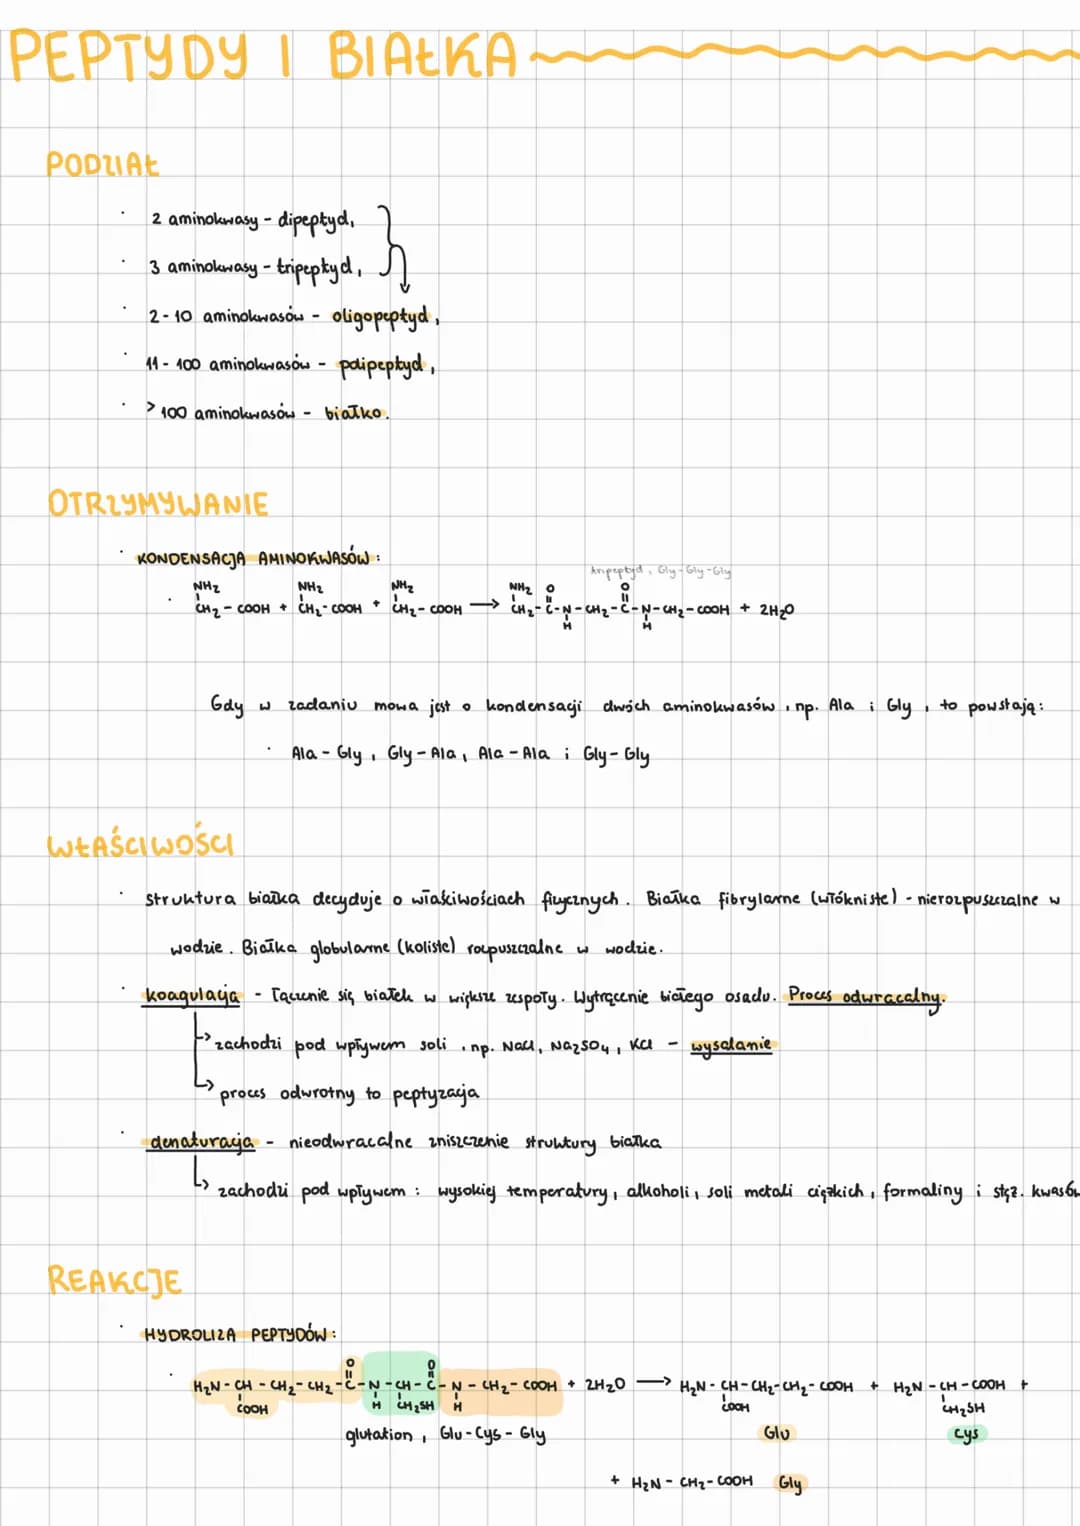 PEPTYDY I BIAŁKA
PODZIAŁ
· 2 aminokwasy - dipeptyd,
· 3 aminokwasy - tripeptyd,
· 2-10 aminokwasów - oligopeptyd,
· 11-100 aminokwasów - polipeptyd,
· >100 aminokwasów - białko.
OTRZYMYWANIE
· KONDENSACJA AMINOKWASÓW:
tripeptyd, Gly-Gly-Gly
NH₂ NH₂ NH₂ NH₂ O O
· CH₂-COOH + CH₂-COOH + CH₂-COOH → CH₂-C-N-CH₂-C-N-CH₂-COOH + 2H₂O
H H
Gdy w zadaniu mowa jest o kondensacji dwóch aminokwasów, np. Ala i Gly, to powstają:
· Ala-Gly, Gly-Ala, Ala-Ala i Gly-Gly
WŁAŚCIWOŚCI
· struktura białka decyduje o właściwościach fizycznych. Białka fibrylarne (włókniste) - nierozpuszczalne w
wodzie. Białka globularne (koliste) rozpuszczalne w wodzie.
· koagulacja - łączenie się białek w większe zespoły. Wytrącenie białego osadu. Proces odwracalny.
↳ zachodzi pod wpływem soli, np. NaCl, Na₂SO₄, KCl - wysalanie
↳ proces odwrotny to peptyzacja
· denaturacja - nieodwracalne zniszczenie struktury białka
↳ zachodzi pod wpływem: wysokiej temperatury, alkoholi, soli metali ciężkich, formaliny i stęż. kwasów
REAKCJE
· HYDROLIZA PEPTYDÓW:
O O
· H₂N-CH-CH₂-CH₂-C-N-CH-C-N-CH₂-COOH + 2H₂O → H₂N-CH-CH₂-CH₂-COOH + H₂N-CH-COOH +
COOH H CH₂SH H COOH CH₂SH
glutation, Glu-Cys-Gly Glu Cys
+ H₂N-CH₂-COOH Gly